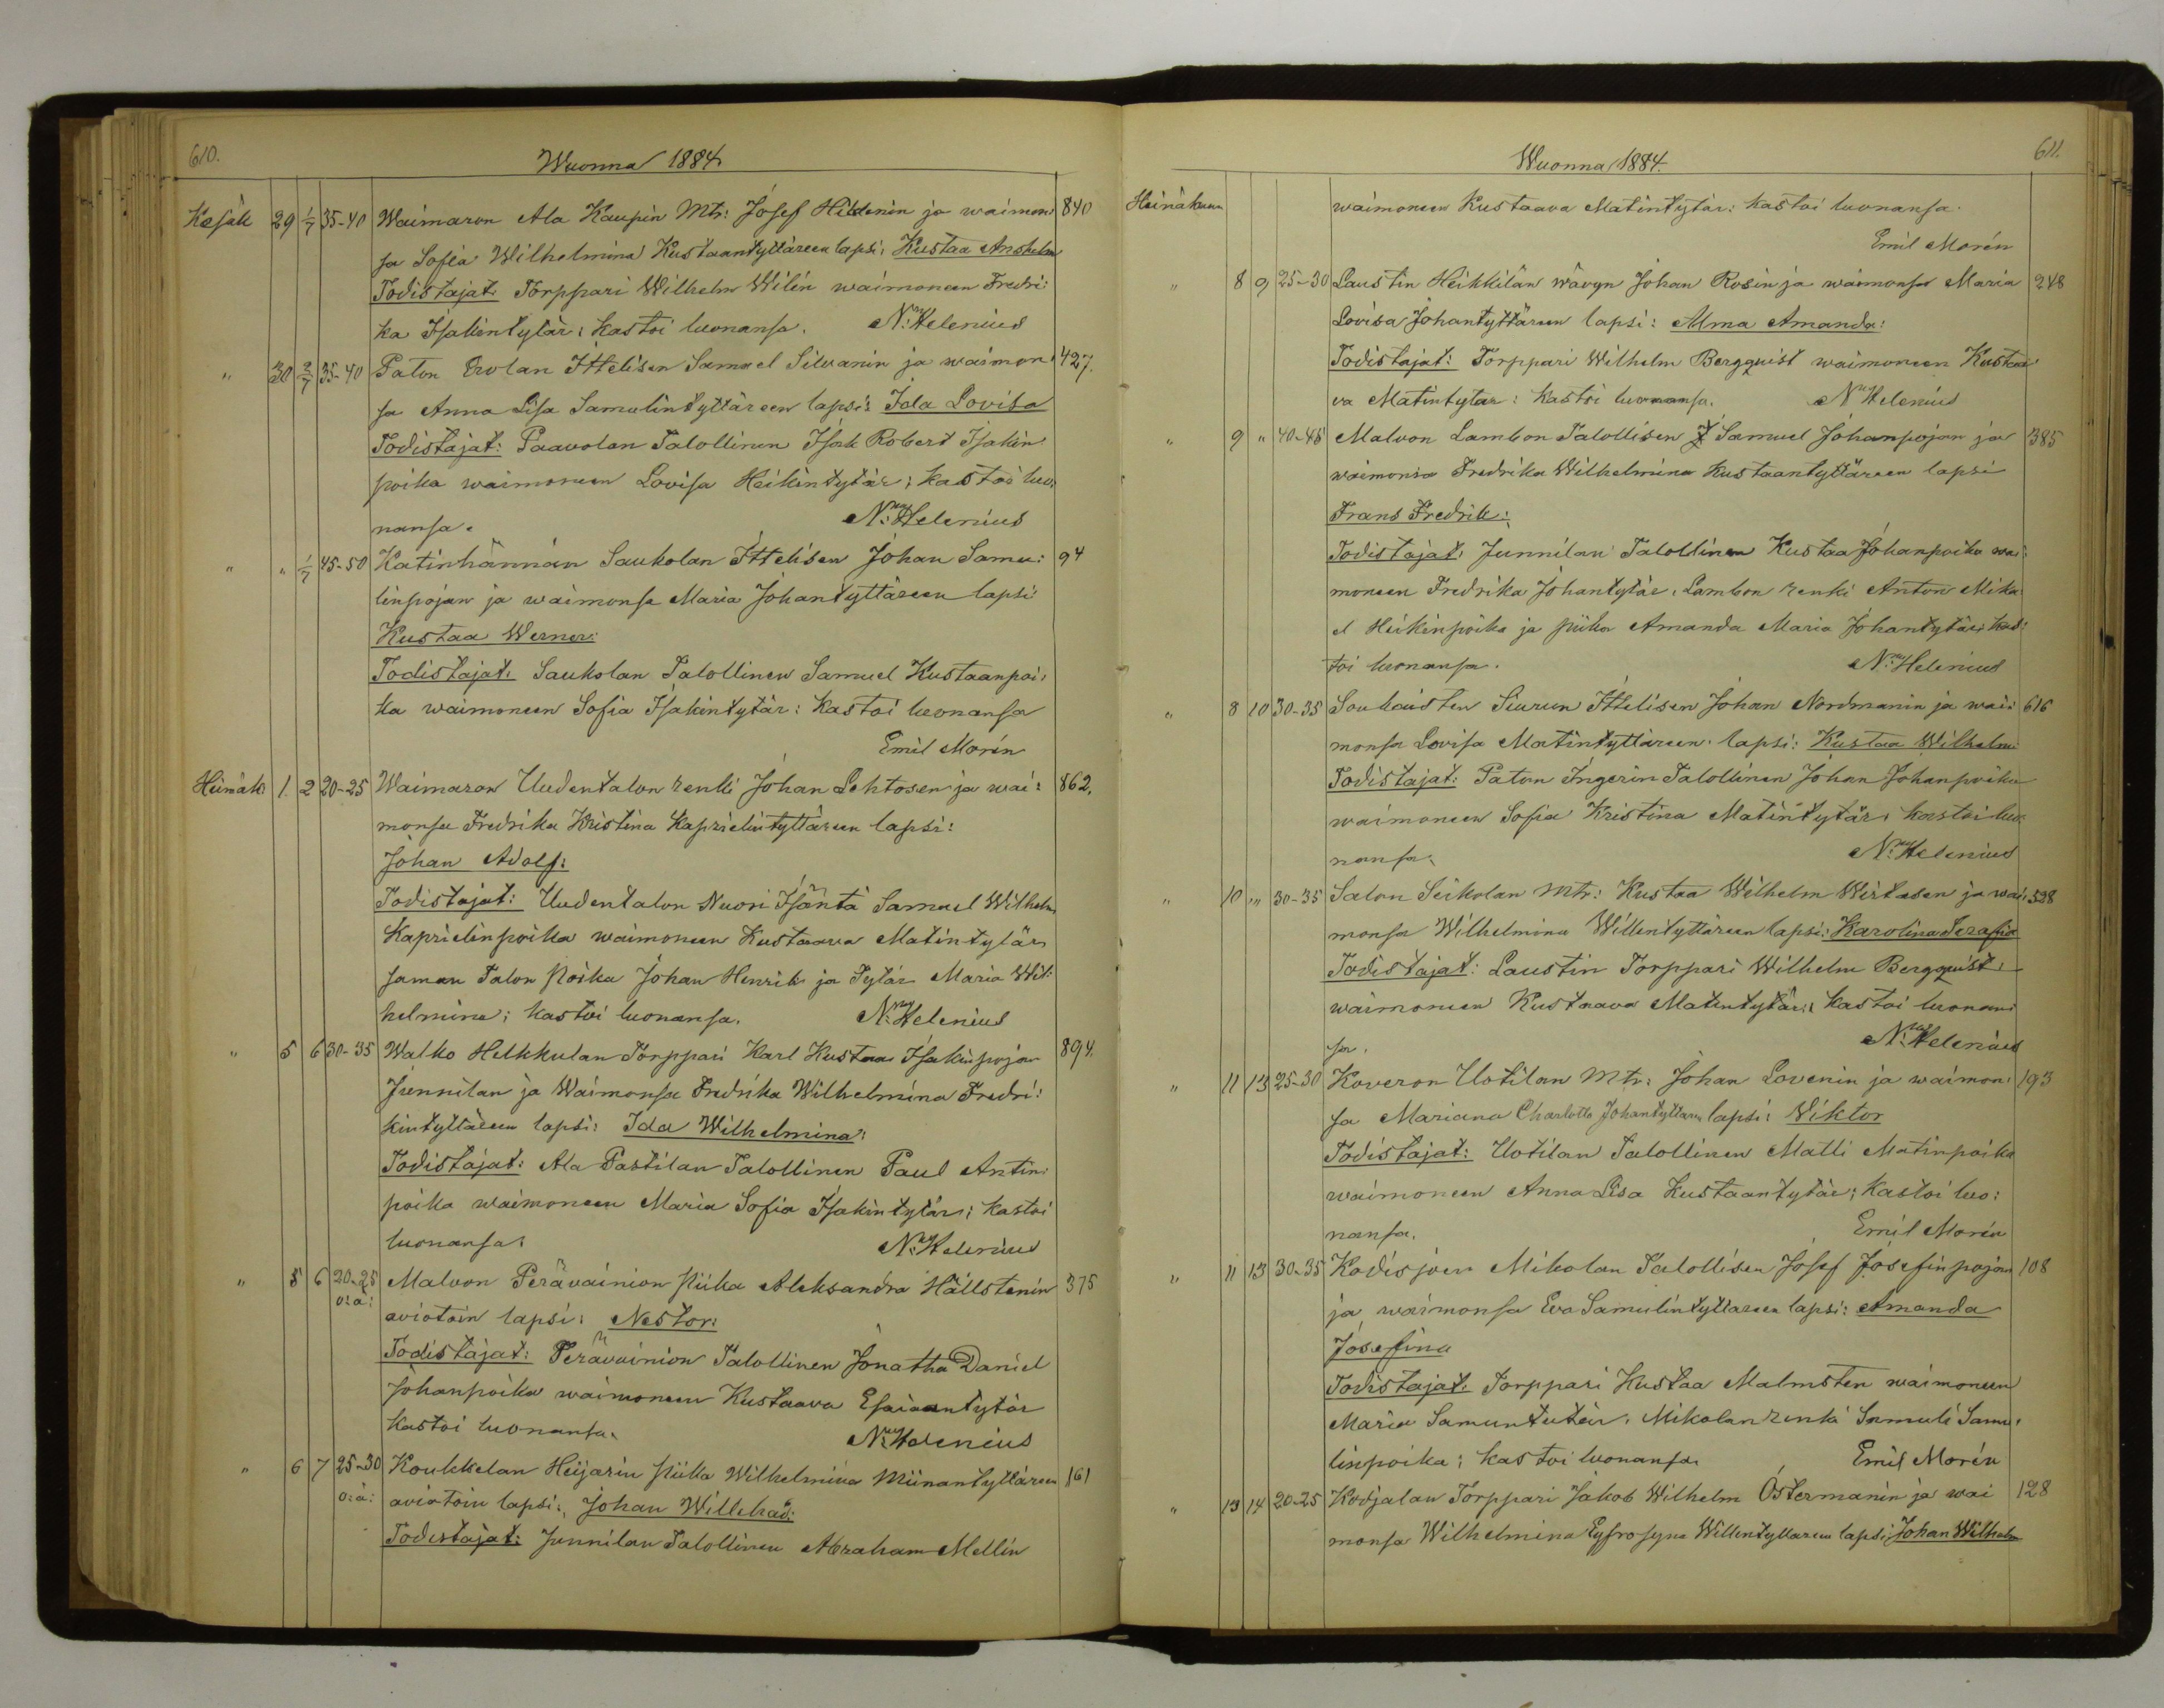 610.
Wuonna 1884
Kesäk 29 1/7 35-40 Waimaron Ala Kaupin Mtr: Josef Hildenin ja waimon: 840
sa Sofia Wilhelmina Kustaantyttäreen lapsi: Kustaa Anshelm
Todistajat: Torppari Wilhelm Wilén waimoneen Fredri:
ka Isakintytär; kastoi luonansa. N: Helenius
" 30 2/7 35-40 Paton Erolan Ittelisen Samuel Silvanin ja waimon: 427.
sa Anna Lisa Samulintyttäreen lapsi: Ida Lovisa
Todistajat: Paavolan Talollinen Isak Robert Isakin
poika waimoneen Lovisa Heikintytär; kastoi luo:
nansa. N: Helenius
" " 1/7 45-50 Katinhännän Saukolan Ittelisen Johan Samu: 94
linpojan ja waimonsa Maria Johantyttäreen lapsi
Kustaa Werner:
Todistajat: Saukolan Talollinen Samuel Kustaanpoi:
ka waimoneen Sofia Isakintytär: kastoi luonansa
Emil Morén
Heinäk 1. 2 20-25 Waimaron Uudentalon renki Johan Lehtosen ja wai: 862.
monsa Fredrika Kristina Kaprielintyttäreen lapsi:
Johan Adolf:
Todistajat: Uudentalon Nuori Isäntä Samuel Wilhelm
Kaprielinpoika waimoneen Kustaava Matintytär
saman Talon Poika Johan Henrik ja Tytär Maria Wil:
helmina; kastoi luonansa. N: Helenius
" 5 6 30-35 Walko Helkkulan Torppari Karl Kustaa Isakinpojan 894.
Junnilan ja Waimonsa Fredrika Wilhelmina Fredri:
kintyttäreen lapsi: Ida Wilhelmina:
Todistajat: Ala Pastilan Talollinen Paul Antin:
poika waimoneen Maria Sofia Isakintytär; kastoi
luonansa: N: Helenius
" 5 6 20-25 Malvon Perävainion Piika Aleksandra Hällstenin 375
o: ä: aviotoin lapsi: Nestor:
Todistajat: Perävainion Talollinen Jonatha Daniel
Johanpoika waimoneen Kustaava Esaiaantytär
kastoi luonansa. N: Helenius
" 6 7 25-30 Koukkelan Heijarin Piika Wilhelmina Miinantyttäreen 161
o: ä: aviotoin lapsi: Johan Willehad:
Todistajat: Junnilan Talollinen Abraham Mellin
611.
Wuonna 1884.
Heinäkuun waimoneen Kustaava Matintytär: kastoi luonansa.
Emil Morén
" 8 9 25-30 Laustin Heikkilän wävyn Johan Rosin ja waimonsa Maria 248
Lovisa Johantyttäreen lapsi: Alma Amanda:
Todistajat: Torppari Wilhelm Bergquist waimoneen Kustaa
va Matintytär: kastoi luonansa. N Helenius
" 9 " 40-45 Malvon Lambon Talollisen Samuel Johanpojan ja 385
waimonsa Fredrika Wilhelmina Kustaantyttäreen lapsi
Frans Fredrik:
Todistajat: Junnilan Talollinen Kustaa Johanpoika wai:
moneen Fredrika Johantytär, Lambon renki Anton Mika
el Heikinpoika ja piika Amanda Maria Johantytär; kas:
toi luonansa. N: Helenius
" 8 10 30-35 Souhaisten Siurun Ittelisen Johan Nordmanin ja wai: 616
monsa Lovisa Matintyttäreen lapsi: Kustaa Wilhelm
Todistajat: Paton Ingerin Talollinen Johan Johanpoika
waimoneen Sofia Kristina Matintytär; kastoi luo
nansa. N: Helenius
" 10 " 30-35 Salon Seikolan Mtr: Kustaa Wilhelm Wirtasen ja wai: 528
monsa Wilhelmina Willentyttäreen lapsi: Karolina Serafia
Todistajat: Laustin Torppari Wilhelm Bergquist
waimoneen Kustaava Matintytär; kastoi luonan:
sa. N: Helenius
" 11 13 25-30 Koveron Uotilan Mtr: Johan Lovenin ja waimon: 193
sa Mariana Charlotta Johantyttären lapsi: Viktor
Todistajat: Uotilan Talollinen Matti Matinpoika
waimoneen Anna Lisa Kustaantytär; kastoi luo:
nansa. Emil Morén
" 11 13 30-35 Kodisjoen Mikolan Talollisen Josef Josefinpojan 108
ja waimonsa Eva Samulintyttäreen lapsi: Amanda
Josefina
Todistajat: Torppari Kustaa Malmsten waimoneen
Maria Samuntytär, Mikolan renki Samuli Samu:
linpoika; kastoi luonansa Emil Morén
" 13 14 20-25 Kodjalan Torppari Jakob Wilhelm Östermanin ja wai 128
monsa Wilhelmina Eyfrosyna Willentyttäreen lapsi: Johan Wilhelm